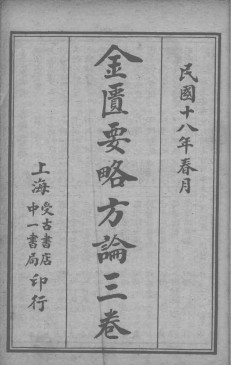 民國十八年春月
金匱要略方論三卷
上海受古書店中一書局印行